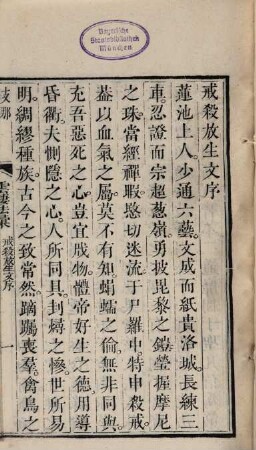 Bayerische
Staatsbibliothek
München
戒殺放生文序
蓮池上人。少通六藝。文成而紙貴洛城。長練三
車。忍證而宗超葱嶺。勇披毘黎之鎧。瑩握摩尼
之珠。當經禪暇。愍切迷流。于尸羅中。特申殺戒。
蓋以血氣之屬。莫不有知。蝡蠕之倫。無非同與。
充吾慈悲之心。豈宜戕物。體帝好生之德。用導
昏衢。夫惻隱之心。人所同具。刲燖之慘。世所易
明。綢繆種族。古今之致常然。躑躅喪羣。禽鳥之
雲棲法彙
戒殺放生文序